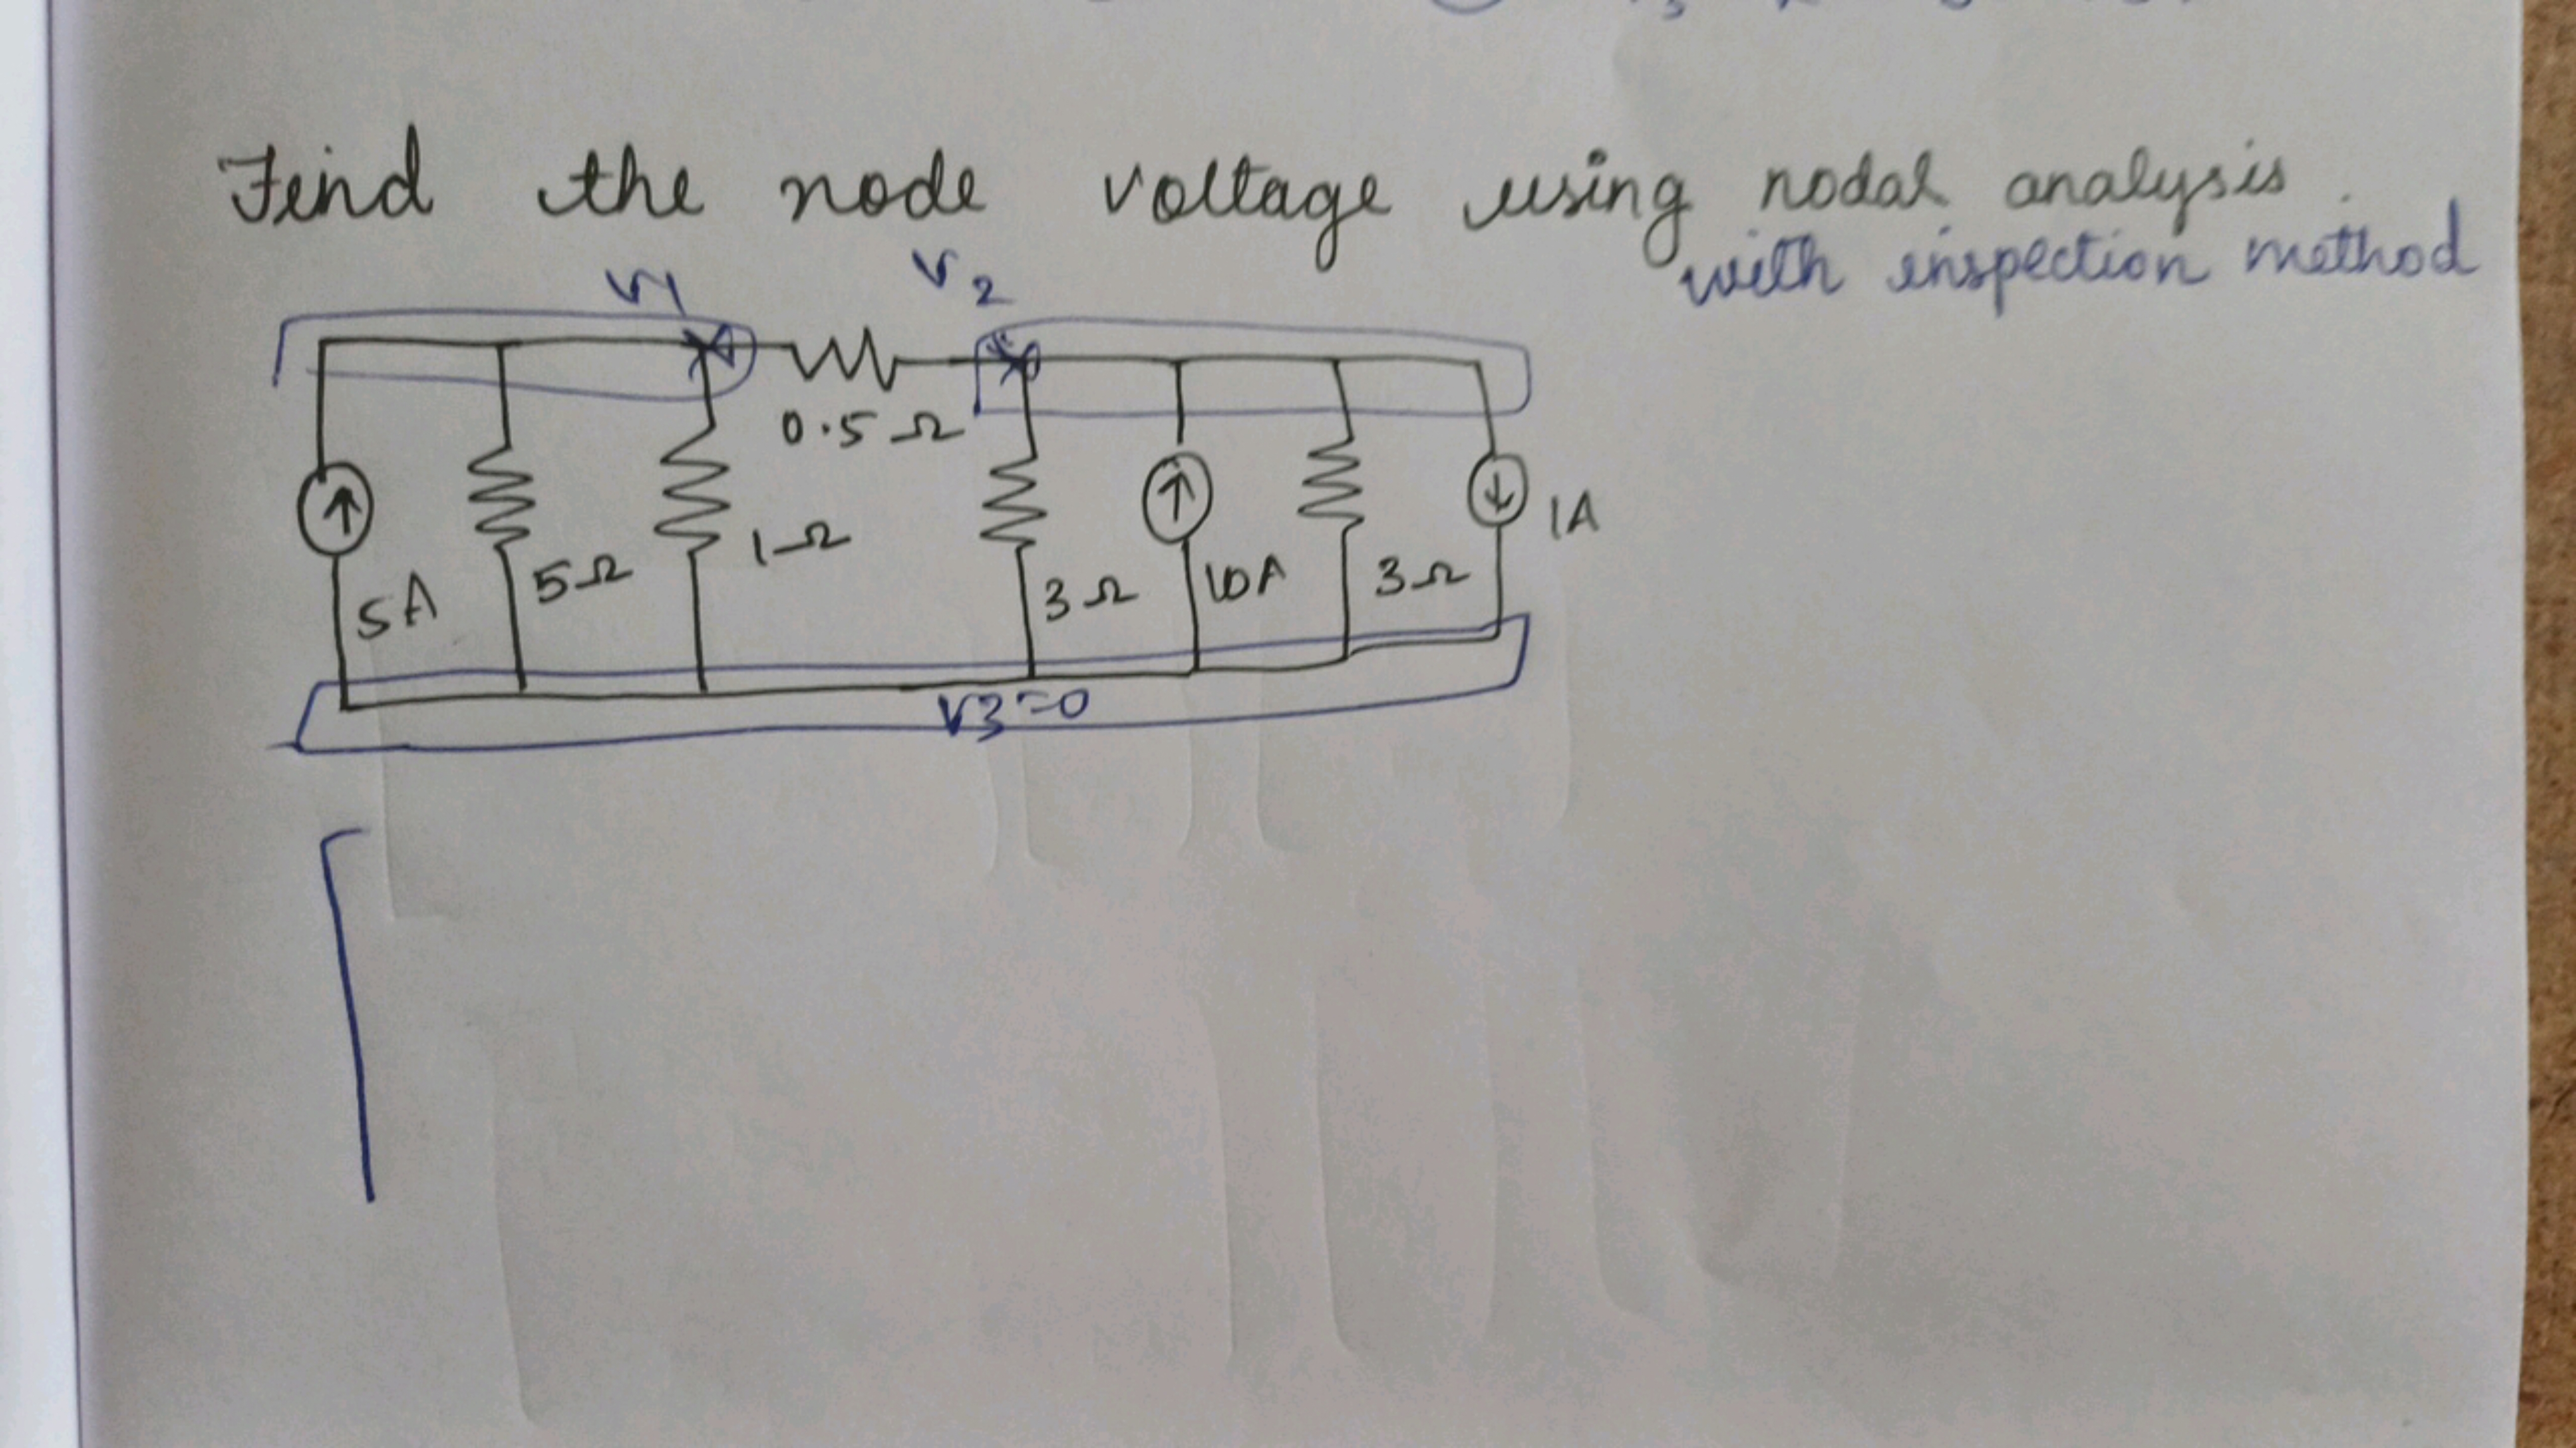 Find the node voltage using nodal analysis.
with inspection method
V1 V2
0.5 Ω
5A 5Ω 1Ω 3Ω 10A 3Ω 1A
V3=0